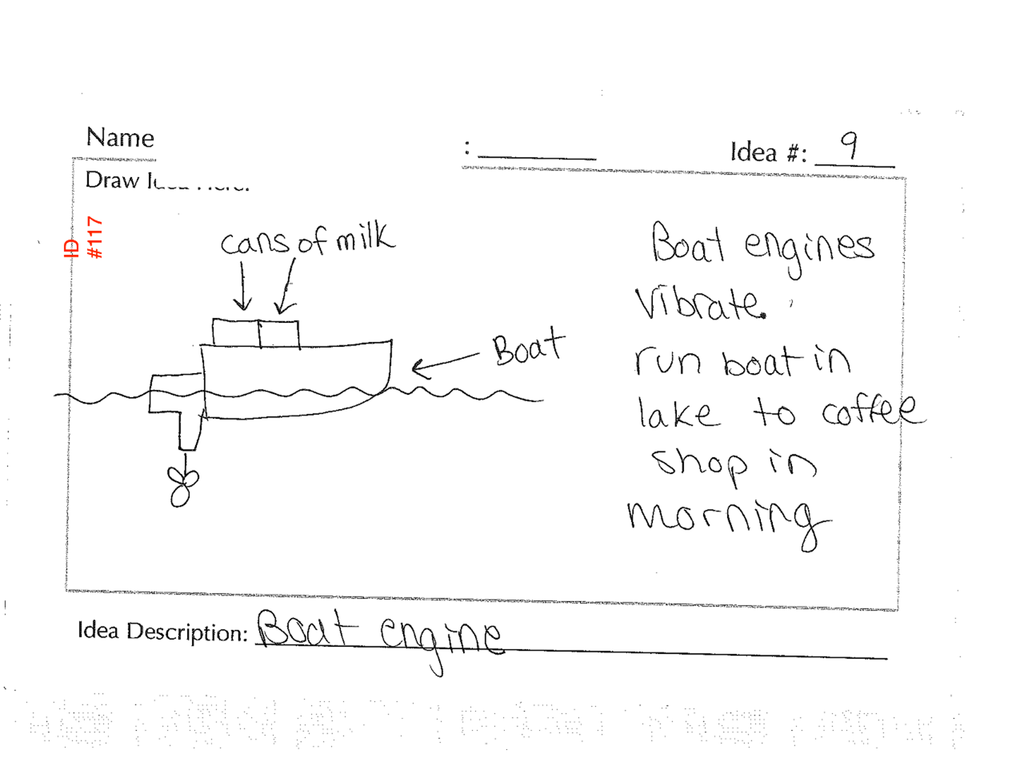 Name : Idea #: 9
Draw Idea Here:
ID
#117
cans of milk
Boat
Boat engines
vibrate.
run boat in
lake to coffee
shop in
morning
Idea Description: Boat engine